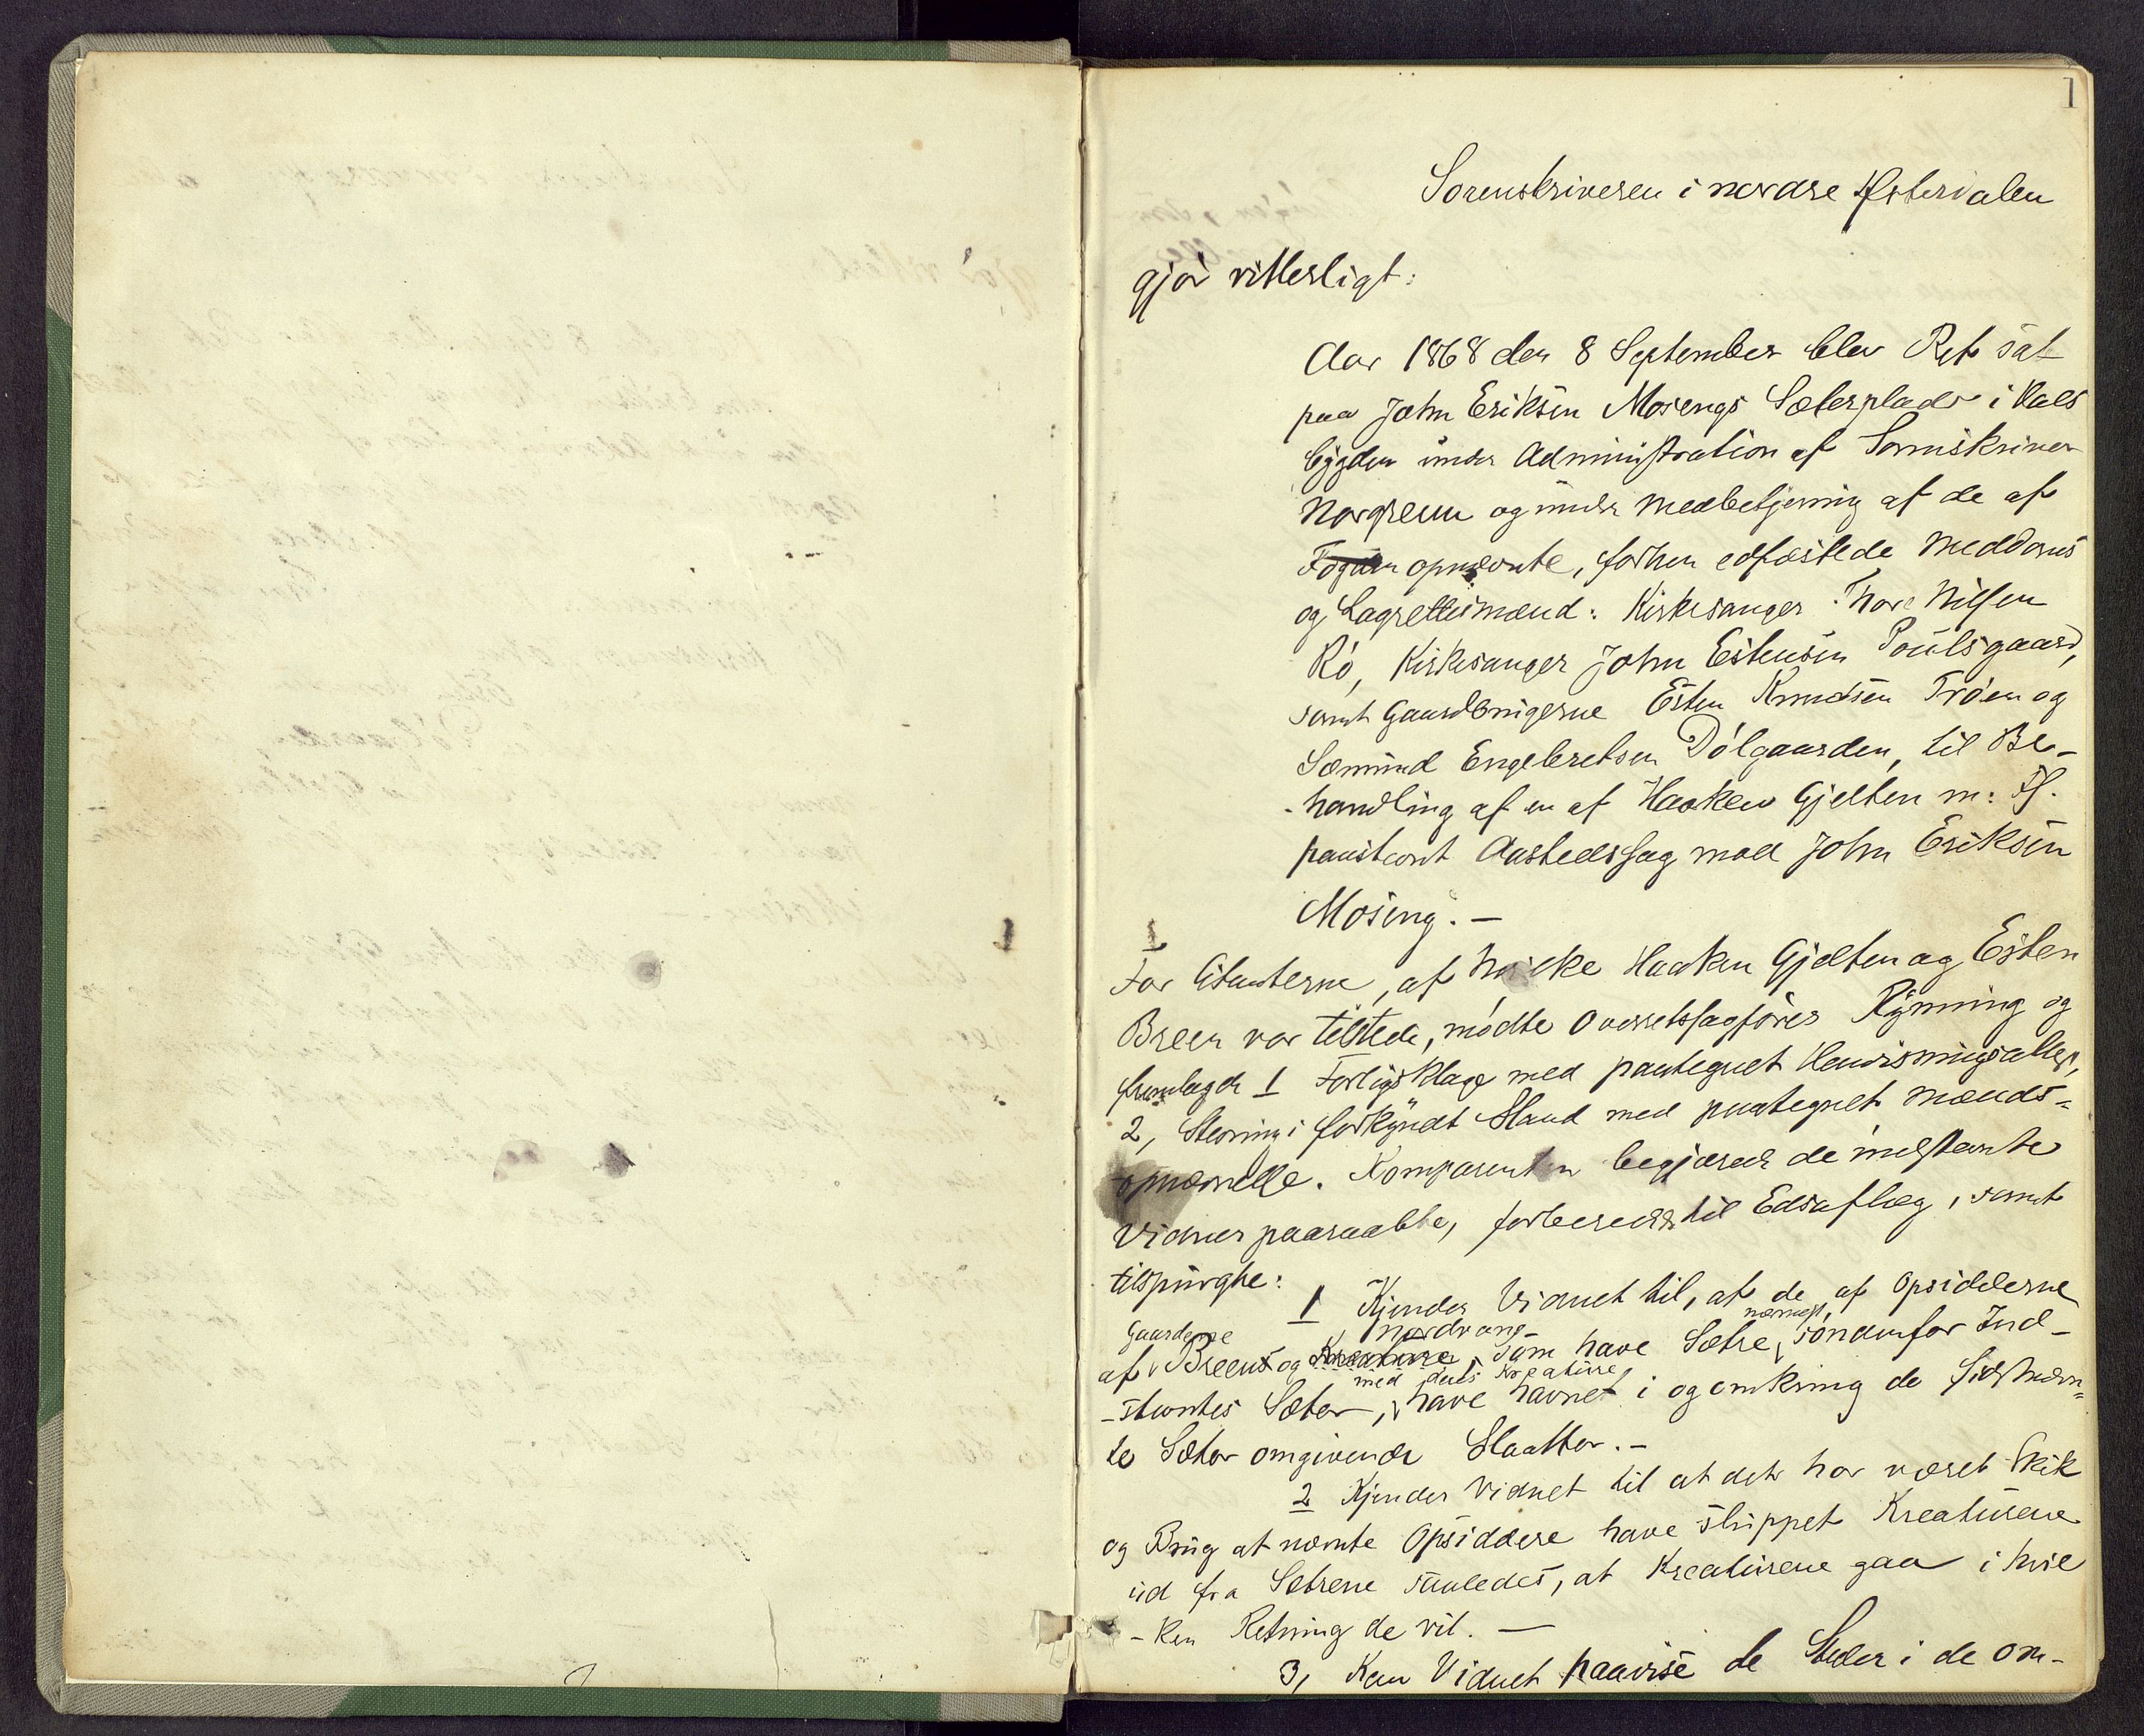 1
Sorenskriveren i nordre Østerdalen
gjør vitterligt:
Aar 1868 den 8 September blev Ret sat
paa John Eriksen Mosengs Sæterplads i Vals
bygden under Administration af Sorenskriver
Norgrenn og under Medbetjening af de af
Fogden opnævnte, forhen edfæstede Meddoms
og Lagrettesmænd: Kirkesanger Thore Nilsen
Rø, Kirkesanger John Estensen Poulsgaard,
samt Gaardbrugerne Esten Knudsen Trøen og
Sæmund Engebretsen Dølgaarden, til Be-
-handling af en af Haaken Gjelten m: Fl.
paastevnt Aastedssag mod John Eriksen
Moseng. -
For Citanterne, af hvilke Haaken Gjelten og Esten
Breen var tilstede, mødte Overretssagfører Rynning og
fremlagde 1 Forligsklage med paategnet Henvisningsattest,
2, Stevning i forkyndt Stand med paategnet Mænds=
opnævnelse. Komparenten begjærede de indstevnte
Vidner paaraabte, forberedte til Edsaflæg, samt
tilspurgte:
1 Kjender Vidnet til, at de af Opsidderne
Gaardene Nordvang nærmest
af Breen og Kreaturene, som have Sætre, søndenfor Ind-
med deres Kreature
-stevntes Sæter, have havnet i og omkring de sidstnævn=
te Sæter omgivende Slaatter. -
2 Kjender Vidnet til at det har været Skik
og Brug at nævnte Opsiddere have sluppet Kreaturene
ud fra Sætrene saaledes, at Kreaturene gaa i hvil
-ken Retning de vil. -
3, Kan Vidnet paavise de Steder i de om-